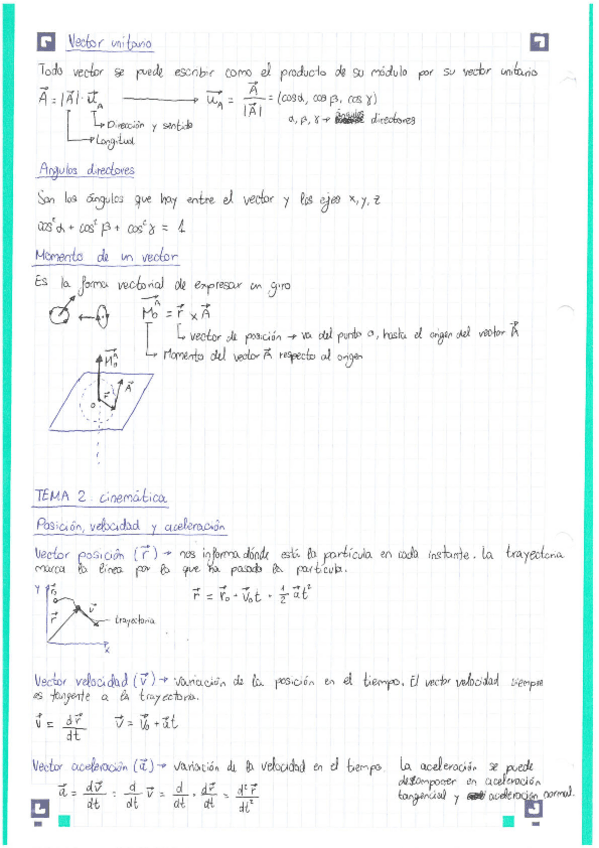 Vector unitario
Todo vector se puede escribir como el producto de su módulo por su vector unitario
A⃗ = |A⃗| · u⃗_A → u⃗_A = A⃗ / |A⃗| = (cos α, cos β, cos γ)
Dirección y sentido
α, β, γ → ángulos directores
Longitud
Ángulos directores
Son los ángulos que hay entre el vector y los ejes x, y, z
cos²α + cos²β + cos²γ = 1
Momento de un vector
Es la forma vectorial de expresar un giro
M⃗₀^A⃗ = r⃗ × A⃗
vector de posición → va del punto o, hasta el origen del vector A⃗
Momento del vector A⃗ respecto al origen
M⃗₀^A⃗
A⃗
r⃗
o
TEMA 2: cinemática
Posición, velocidad y aceleración
Vector posición (r⃗) → nos informa dónde está la partícula en cada instante. La trayectoria
marca la línea por la que ha pasado la partícula.
r⃗ = r⃗₀ + v⃗₀t + 1/2 a⃗t²
y
r⃗₀
r⃗
v⃗
trayectoria
x
Vector velocidad (v⃗) → variación de la posición en el tiempo. El vector velocidad siempre
es tangente a la trayectoria.
v⃗ = dr⃗/dt v⃗ = v⃗₀ + a⃗t
Vector aceleración (a⃗) → variación de la velocidad en el tiempo. La aceleración se puede
descomponer en aceleración
tangencial y aceleración normal.
a⃗ = dv⃗/dt = d/dt v⃗ = d/dt · dr⃗/dt = d²r⃗/dt²